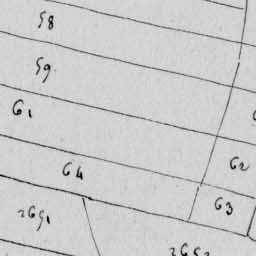 58
59
61
62
64
63
2651
2652